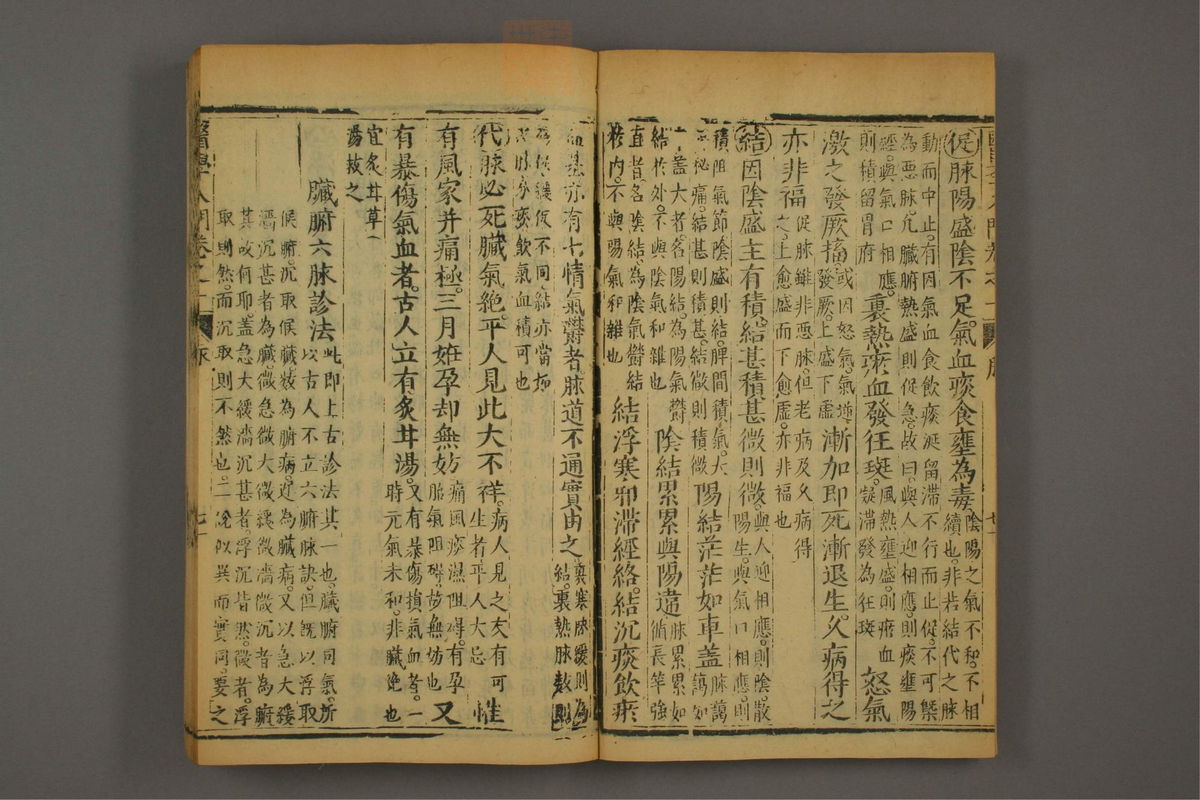 促脉陽盛陰不足氣血痰食壅為毒陰陽之氣不和不相續也非若結代之脉
動而中止有因氣血食飲痰涎留滯不行而止促不可槩
為惡脉凢臟腑熱盛則促急故曰與人迎相應則痰壅陽
經與氣口相應則積留胃府裏熱瘀血發狂斑風熱壅盛則瘀血凝滯發為狂斑怒氣
激之發厥搐或因怒氣氣逆發厥上盛下虛漸加即死漸退生久病得之
亦非福促脉雖非惡脉但老病及久病得之上愈盛而下愈虛亦非福也
結因陰盛主有積結甚積甚微則微與人迎相應則陰散陽生與氣口相應則
積阻氣節陰盛則結脾間積氣大
腸秘痛結甚則積甚結微則積微陽結茫茫如車盖脉藹藹如
車盖大者名陽結為陽氣鬱
結於外不與陰氣和雜也陰結累累與陽違脉累累如循長竿強
直者名陰結為陰氣鬱結
於内不與陽氣和雜也結浮寒邪滯經絡結沉痰飲瘀
血甚亦有七情氣鬱者脉道不通實由之裏寒脉緩則為結裏熱脉數則
為促緩促不同結亦當如
促脉分痰飲氣血積可也
代脉必死臟氣絶平人見此大不祥病人見之友有可生者平人大忌惟
有風家并痛極三月姙孕却無妨痛風痧濕阻碍有孕胎氣阻碍皆無妨也又
有暴傷氣血者古人立有炙甘湯又有暴傷損氣血者一時元氣未和非臟絶也
宜炙甘草
湯救之
臟腑六脉診法此即上古診法其一也臟腑同氣所以古人不立六腑脉訣但既以浮取
候腑沉取候臟數為腑病遲為臟病又以急大緩
濇沉甚者為臟微急微大微緩微濇微沉者為腑
其故何耶盖急大緩濇沉甚者浮沉皆然微者浮
取則然而沉取則不然也二說似異而實同要之
醫學入門卷之一
脉
七十一